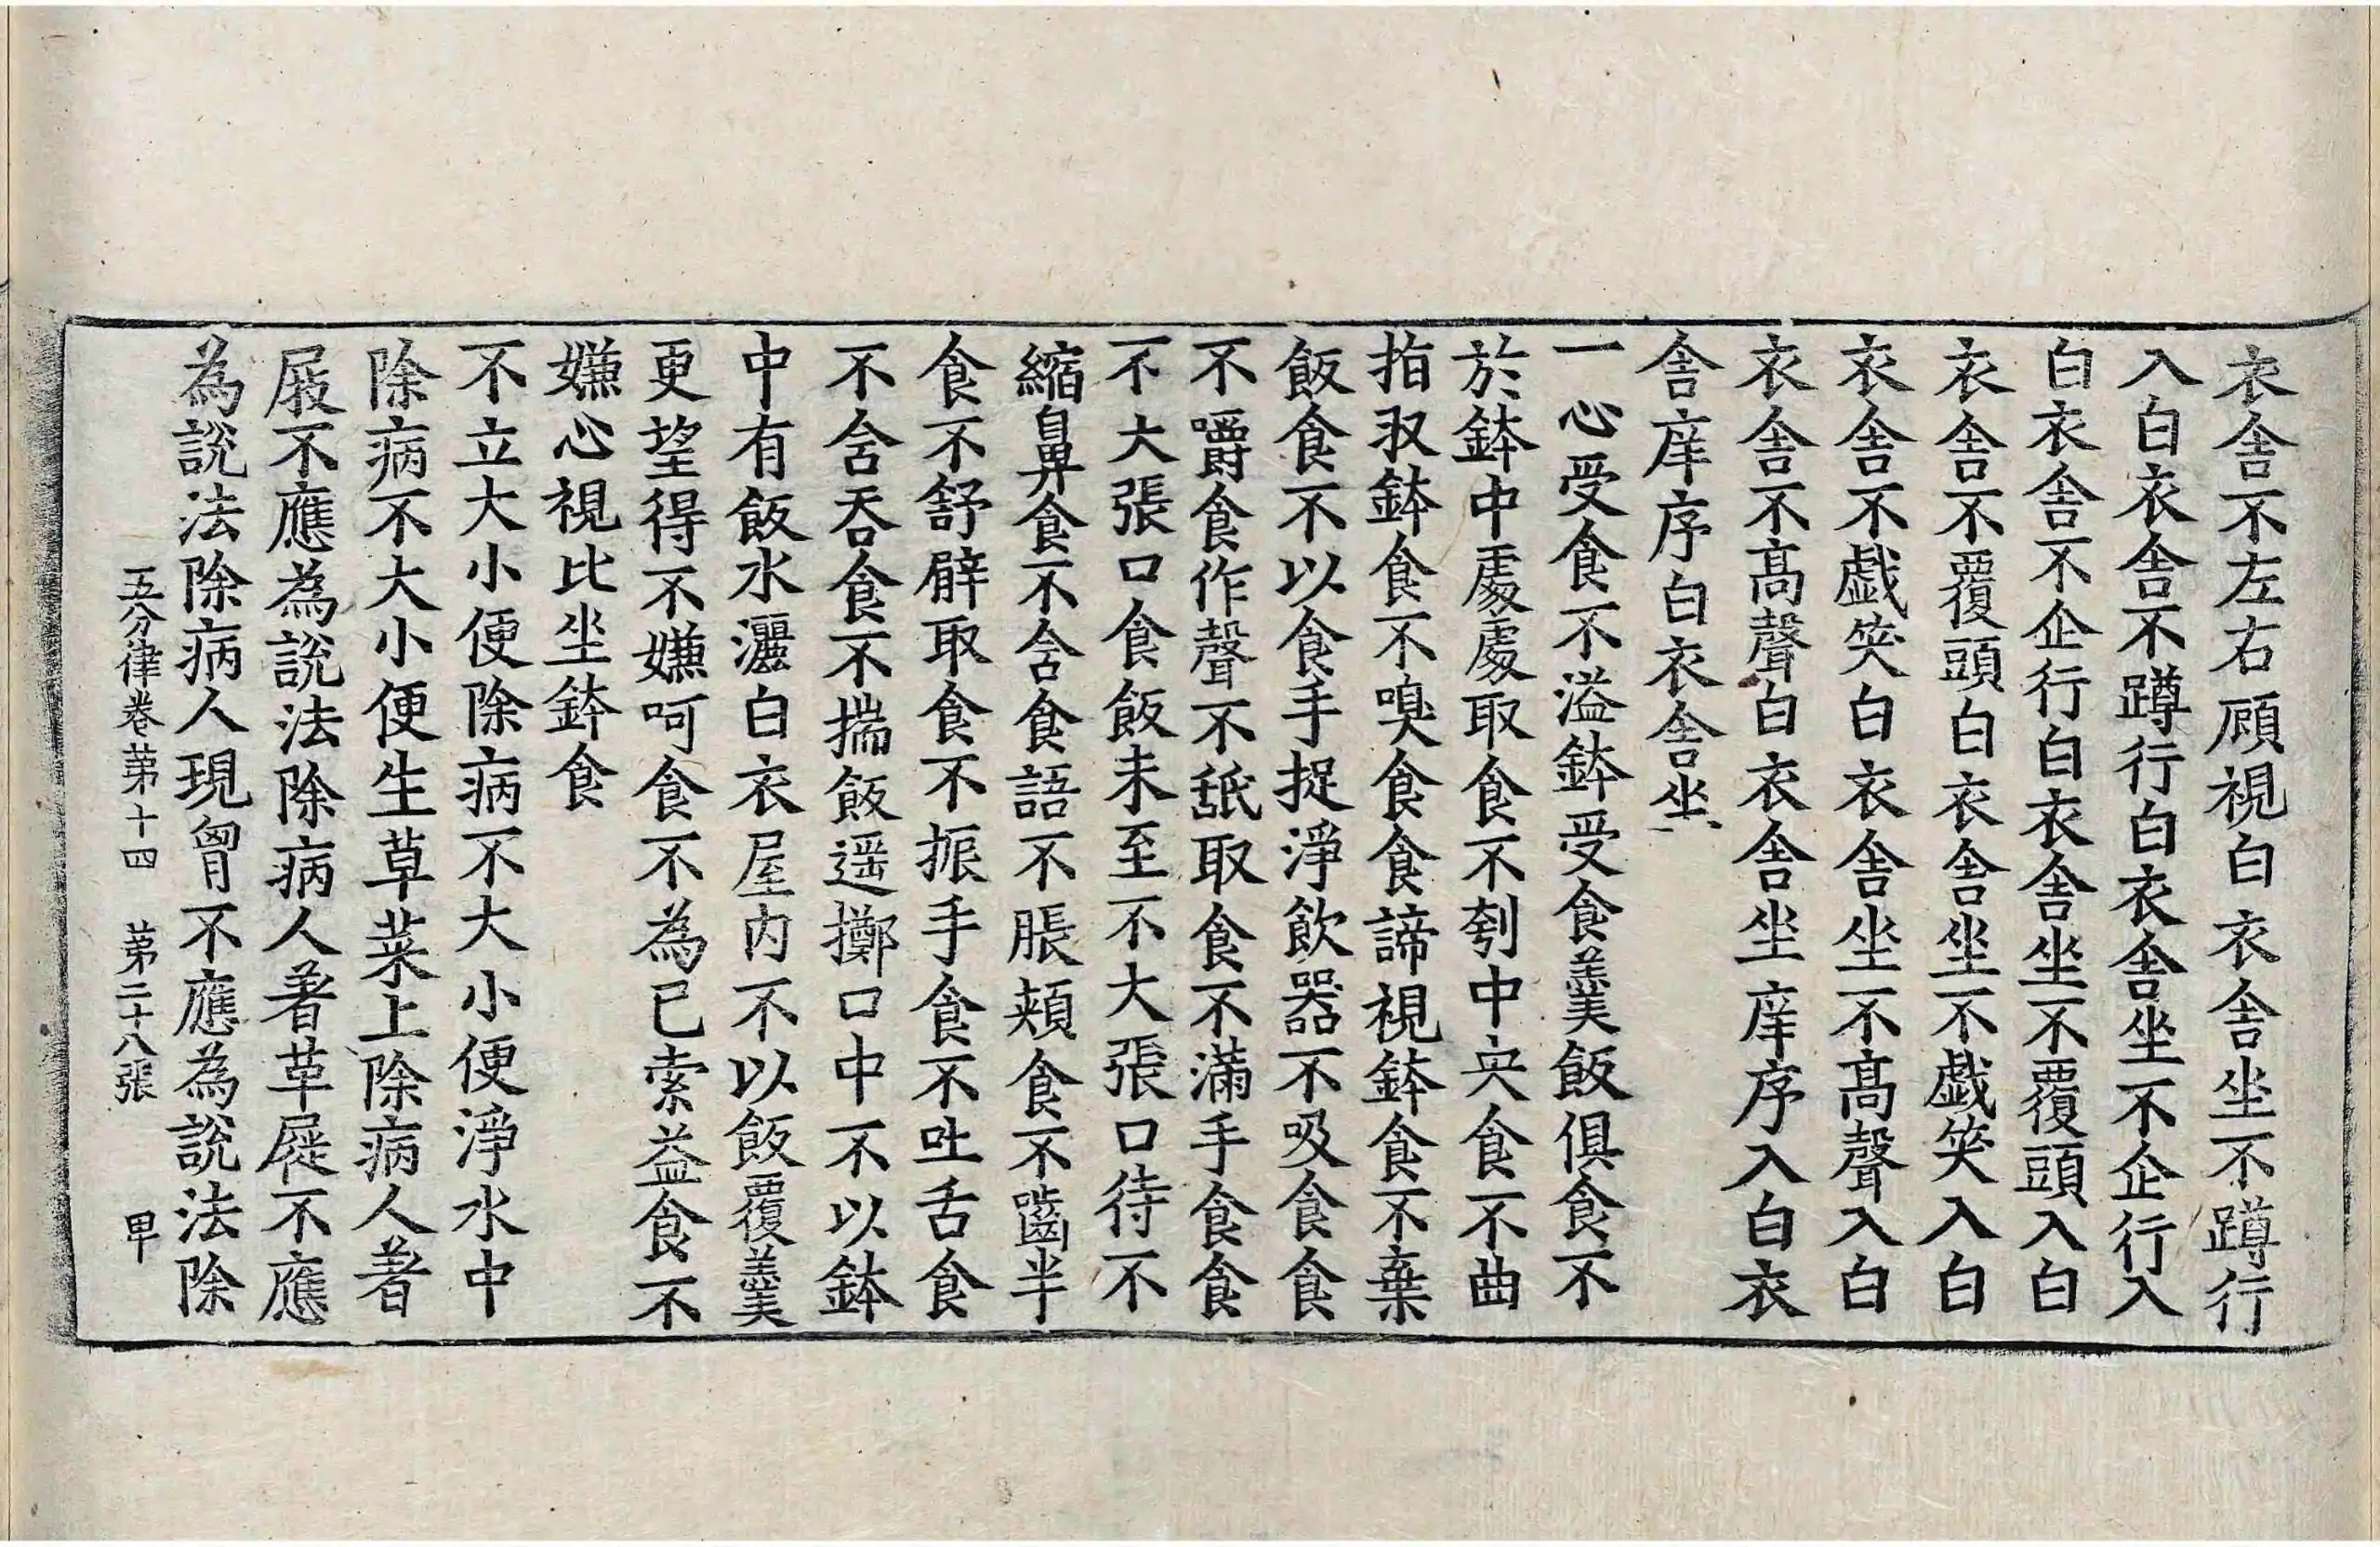 衣舎不左右顧視白衣舎坐不蹲行
入白衣舎不蹲行白衣舎坐不企行入
白衣舎不企行白衣舎坐不覆頭入白
衣舎不覆頭白衣舎坐不戯笑入白
衣舎不戯笑白衣舎坐不髙聲入白
衣舎不髙聲白衣舎坐庠序入白衣
舎庠序白衣舎坐
一心受食不溢鉢受食羹飯俱食不
於鉢中處處取食不刳中央食不曲
指収鉢食不嗅食食諦視鉢食不棄
飯食不以食手捉淨飲器不吸食食
不嚼食作聲不舐取食不滿手食食
不大張口食飯未至不大張口待不
縮鼻食不含食語不脹頰食不齧半
食不舒臂取食不振手食不吐舌食
不含吞食不揣飯遥擲口中不以鉢
中有飯水灑白衣屋内不以飯覆羹
更望得不嫌呵食不為已索益食不
嫌心視比坐鉢食
不立大小便除病不大小便淨水中
除病不大小便生草菜上除病人著
屐不應為說法除病人著革屣不應
為說法除病人現胷不應為說法除
五分律卷第十四　第二十八張　甲